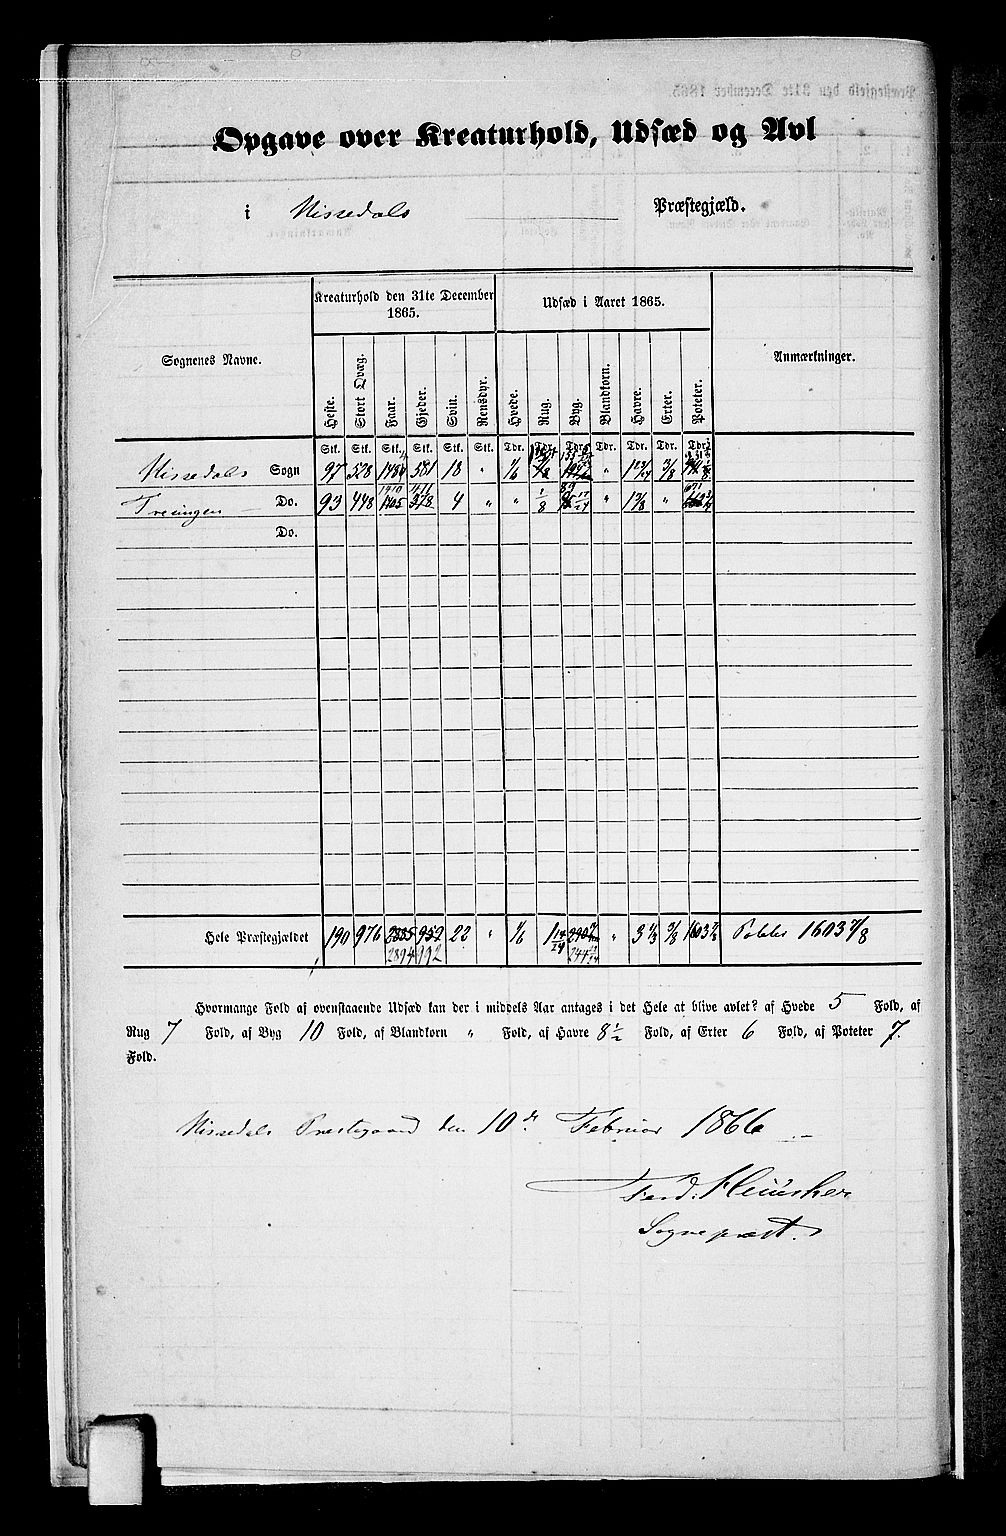 Opgave over Kreaturhold, Udsæd og Avl
i Nissedals Præstegjæld.
Sognenes Navne.
Kreaturhold den 31te December 1865.
Udsæd i Aaret 1865.
Anmærkninger.
Heste. Stort Qvæg. Faar. Gjeder. Svin. Rensdyr. Hvede. Rug. Byg. Blandkorn. Havre. Erter. Poteter.
Stk. Stk. Stk. Stk. Stk. Stk. Tdr. Tdr. Tdr. Tdr. Tdr. Tdr. Tdr.
Nissedals Sogn 97 528 581 18 " 1/6 " 3/8
Tresingen Do. 93 448 1410 4 " " 1/8 " 1 3/8 "
Do.
Hele Præstegjældet 190 976 2355 952 22 " 1/6 1 14/24 " 3 1/3 3/8 1603 7/8 Poteter 1603 7/8
2894 992 244
Hvormange Fold af ovenstaaende Udsæd kan der i middels Aar antages i det Hele at blive avlet? af Hvede 5 Fold, af
Rug 7 Fold, af Byg 10 Fold, af Blandkorn " Fold, af Havre 8 1/2 Fold, af Erter 6 Fold, af Poteter 7.
Fold.
Nissedals Præstegaard den 10de Februar 1866
Ferd.
Sognepræst.